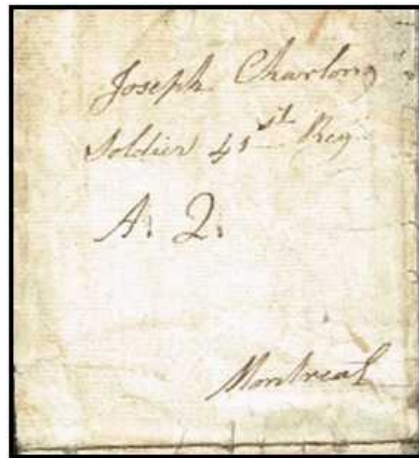 Joseph Charlong
Soldier 41st Reg
A. 2.
Montreal